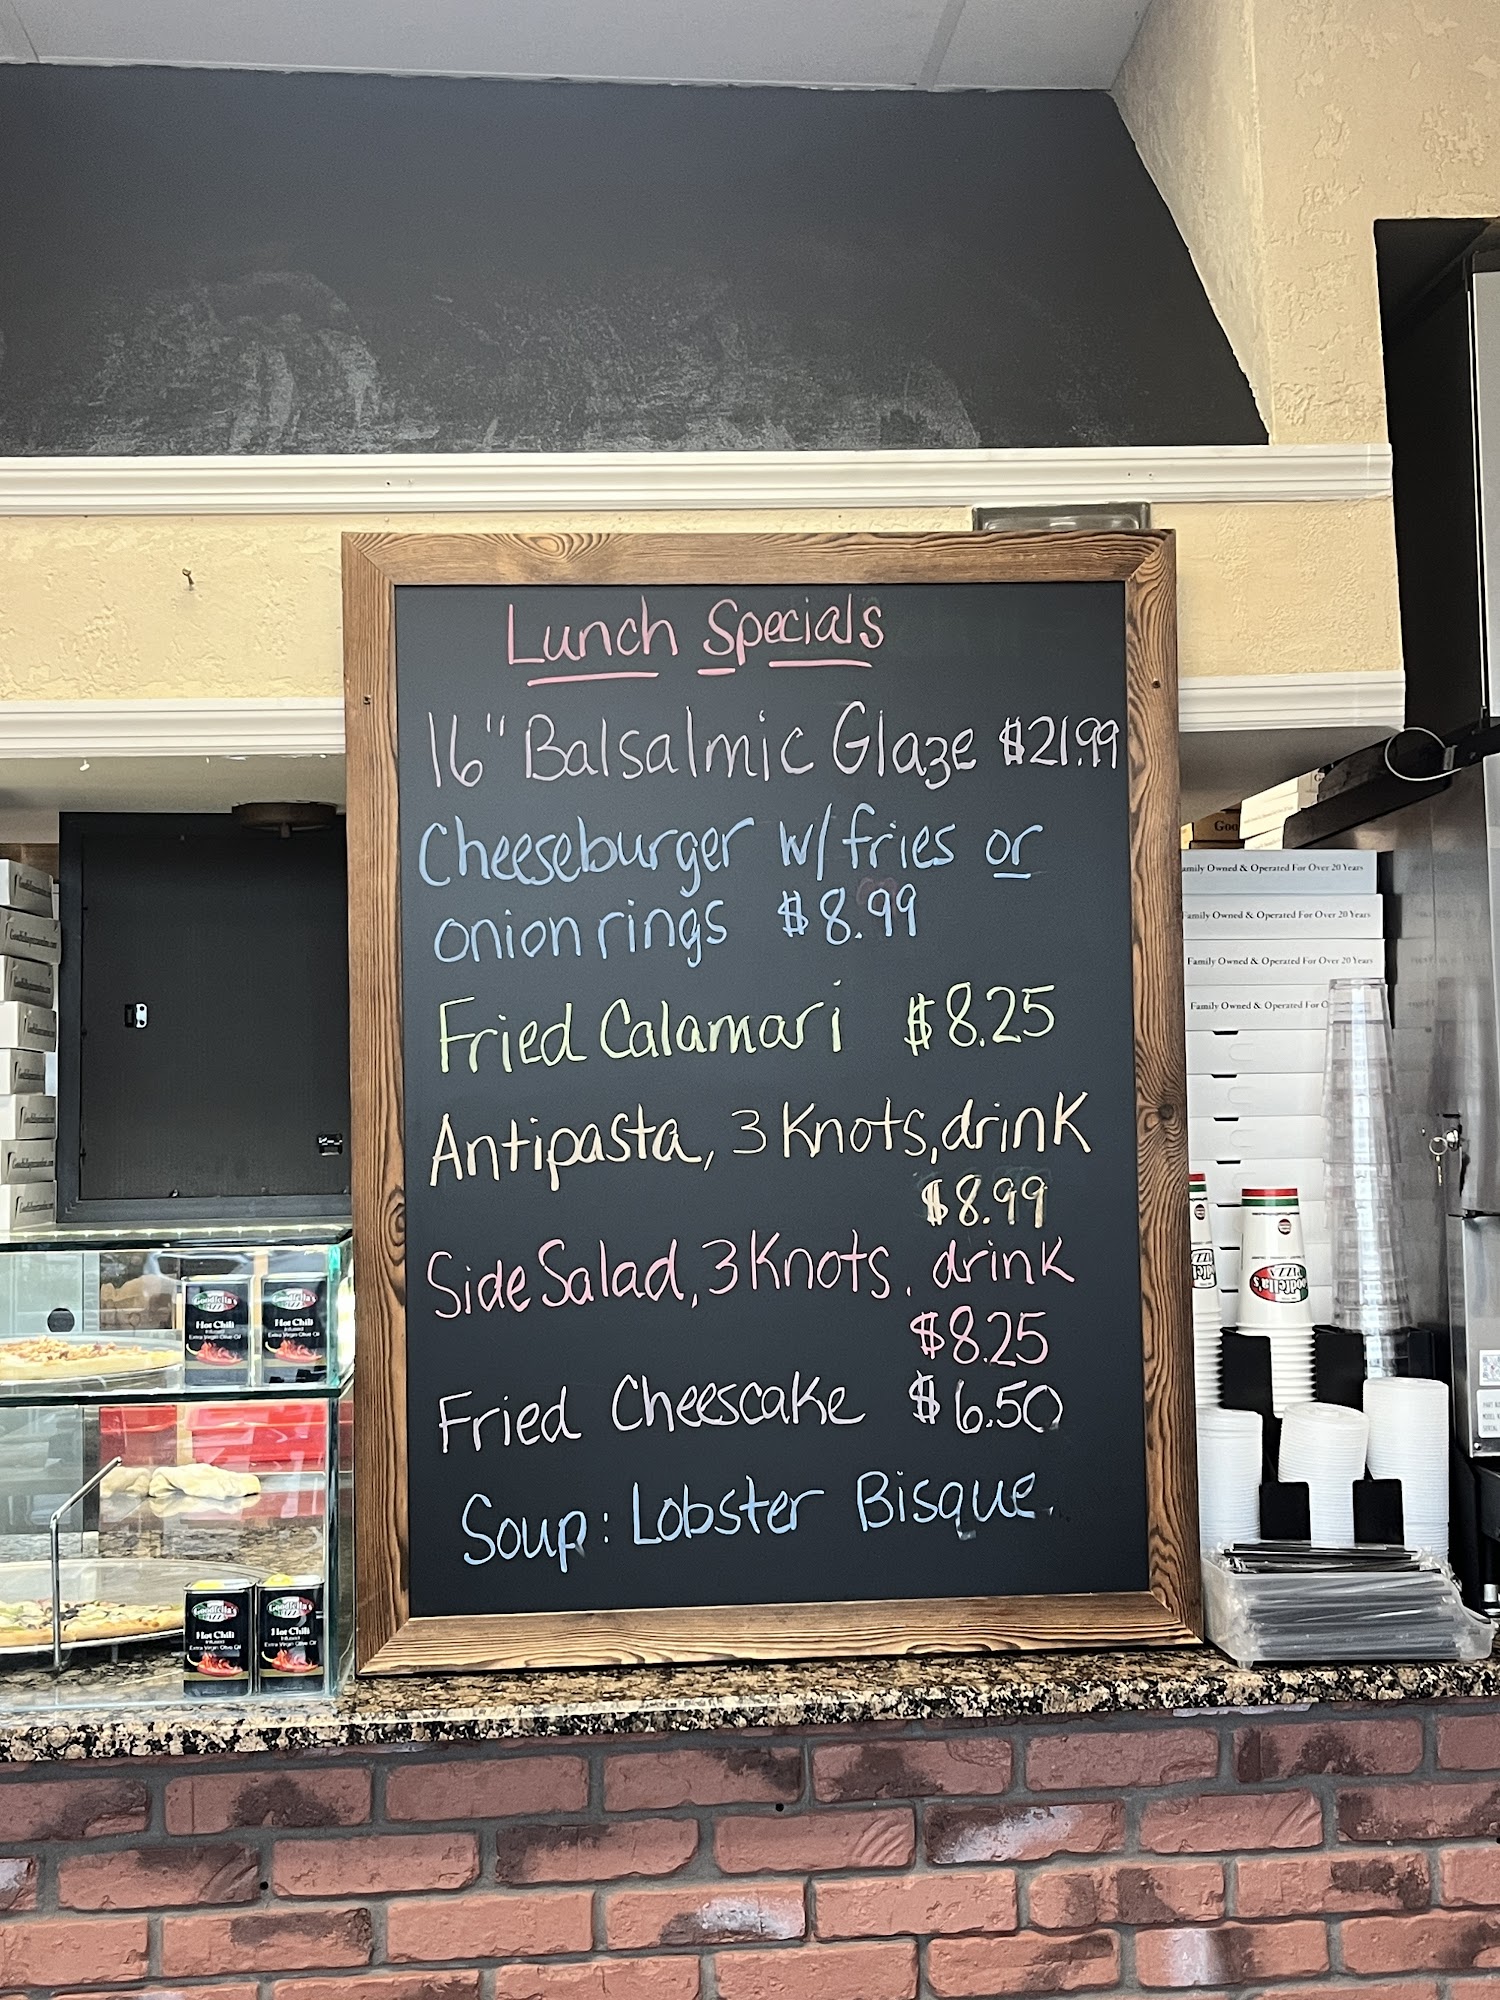 Lunch Specials
16" Balsalmic Glaze $21.99
Cheeseburger w/ fries or
onion rings $8.99
Fried Calamari $8.25
Antipasta, 3 Knots, drink
$8.99
Side Salad, 3 Knots, drink
$8.25
Fried Cheescake $6.50
Soup: Lobster Bisque
Goo
amily Owned & Operated For Over 20 Years
amily Owned & Operated For Over 20 Years
Family Owned & Operated For Over 20 Years
Family Owned & Operated For O
Goodfella's
Hot Chili
Infused
Extra Virgin Olive Oil
Goodfella's
Hot Chili
Infused
Extra Virgin Olive Oil
Goodfella's
PIZZA
Hot Chili
Infused
Extra Virgin Olive Oil
Goodfella's
PIZZA
Hot Chili
Infused
Extra Virgin Olive Oil